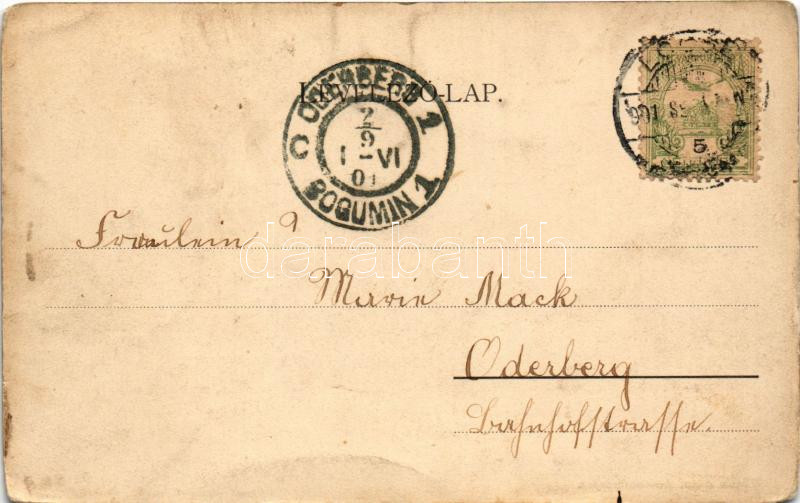 LEVELEZŐ-LAP.
ODERBERG 1
2
9
1-VI
01
BOGUMIN 1
5
darabanth
Fräulein
Marie Mack
Oderberg
Bahnhofstrasse.